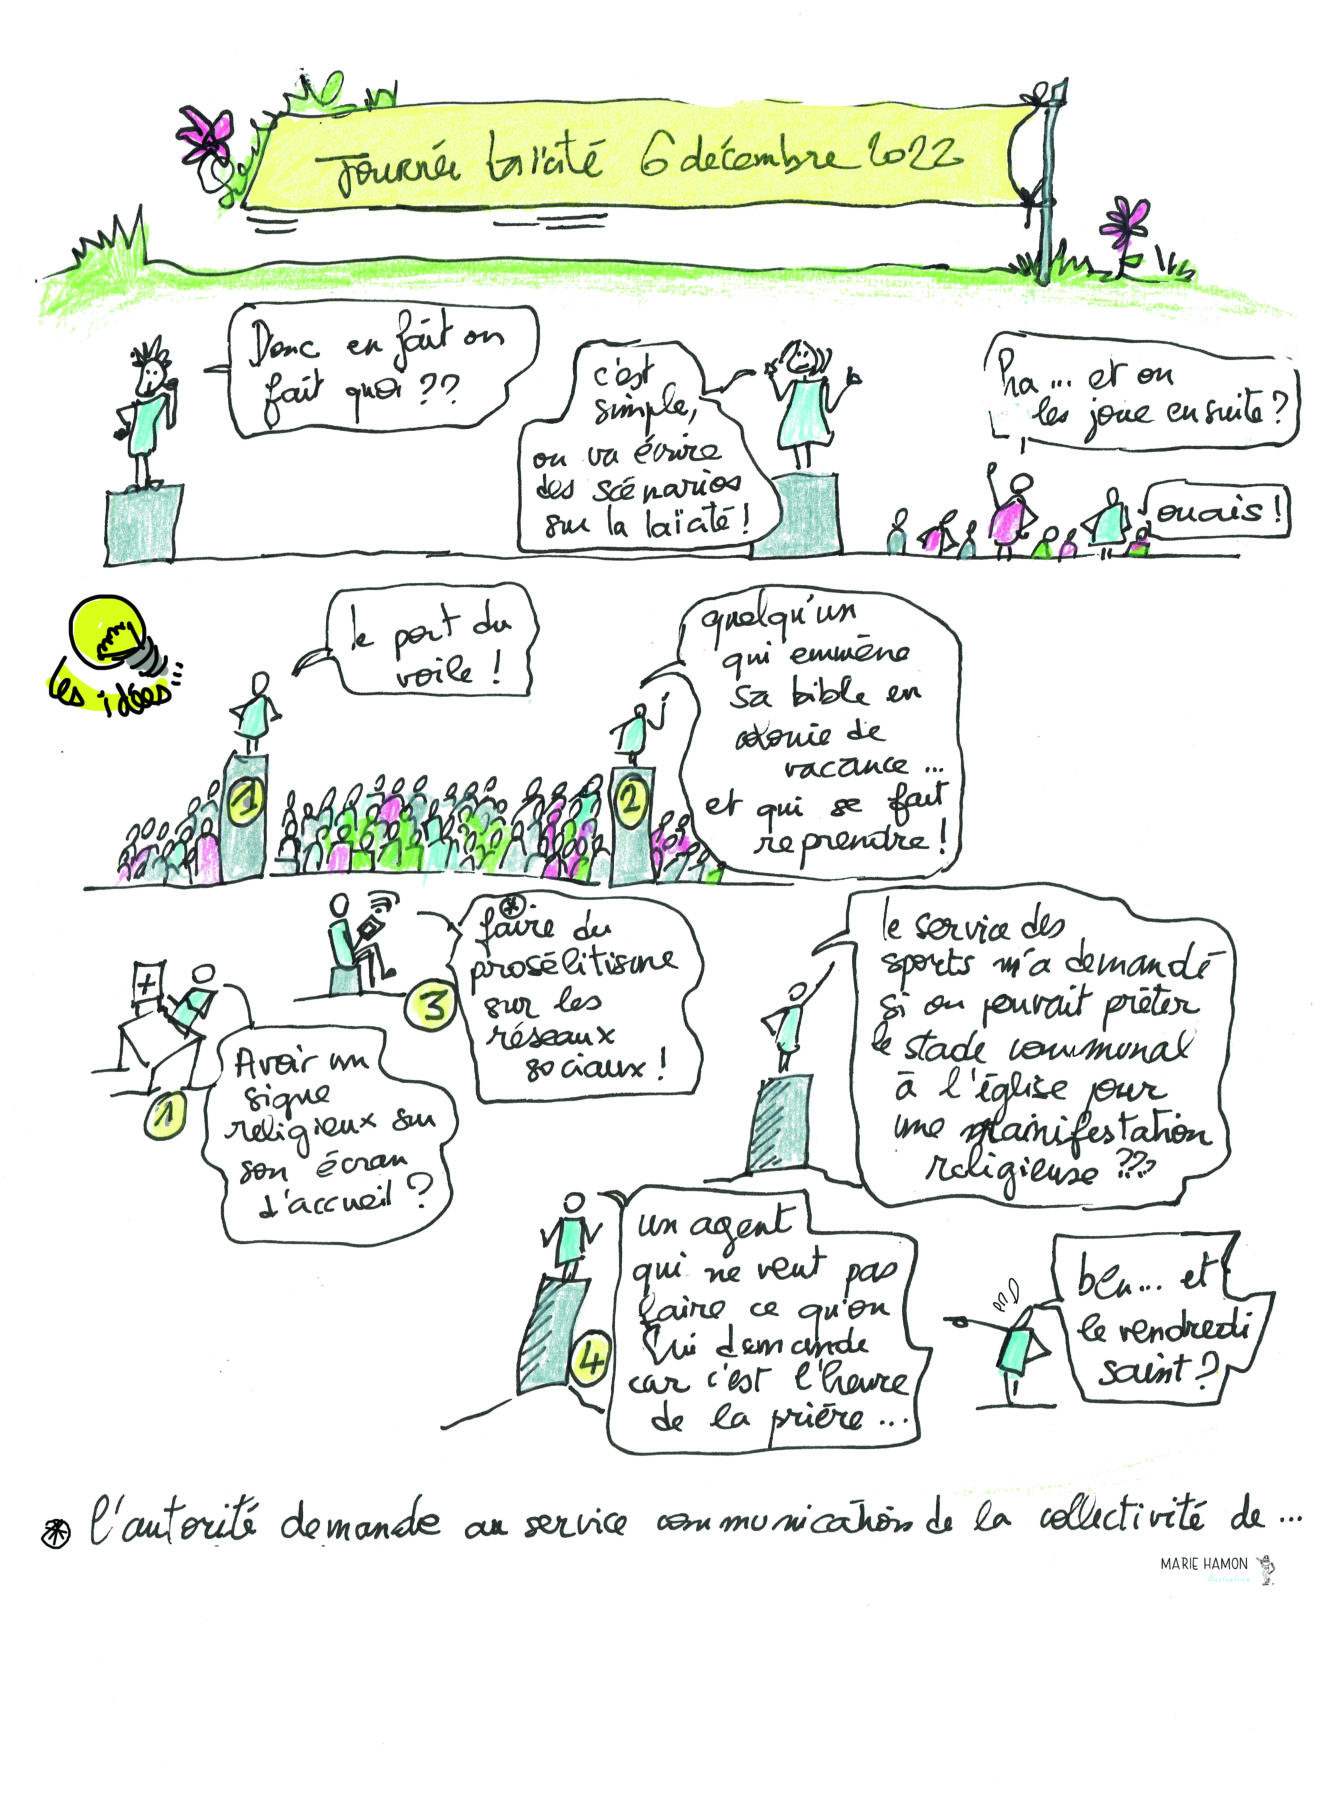 Journée laïcité 6 décembre 2022
Donc en fait on
fait quoi ??
c'est
simple,
on va écrire
des scénarios
sur la laïcité !
ha... et on
les joue ensuite ?
ouais !
les idées...
le port du
voile !
1
quelqu'un
qui emmène
sa bible en
colonie de
vacance ...
et qui se fait
reprendre !
2
faire du
prosélitisme
sur les
réseaux
sociaux !
3
Avoir un
signe
religieux sur
son écran
d'accueil ?
1
le service des
sports m'a demandé
si on pouvait prêter
le stade communal
à l'église pour
une manifestation
religieuse ???
un agent
qui ne veut pas
faire ce qu'on
lui demande
car c'est l'heure
de la prière ...
4
ben... et
le vendredi
saint ?
* l'autorité demande au service communication de la collectivité de ...
MARIE HAMON
illustratrice